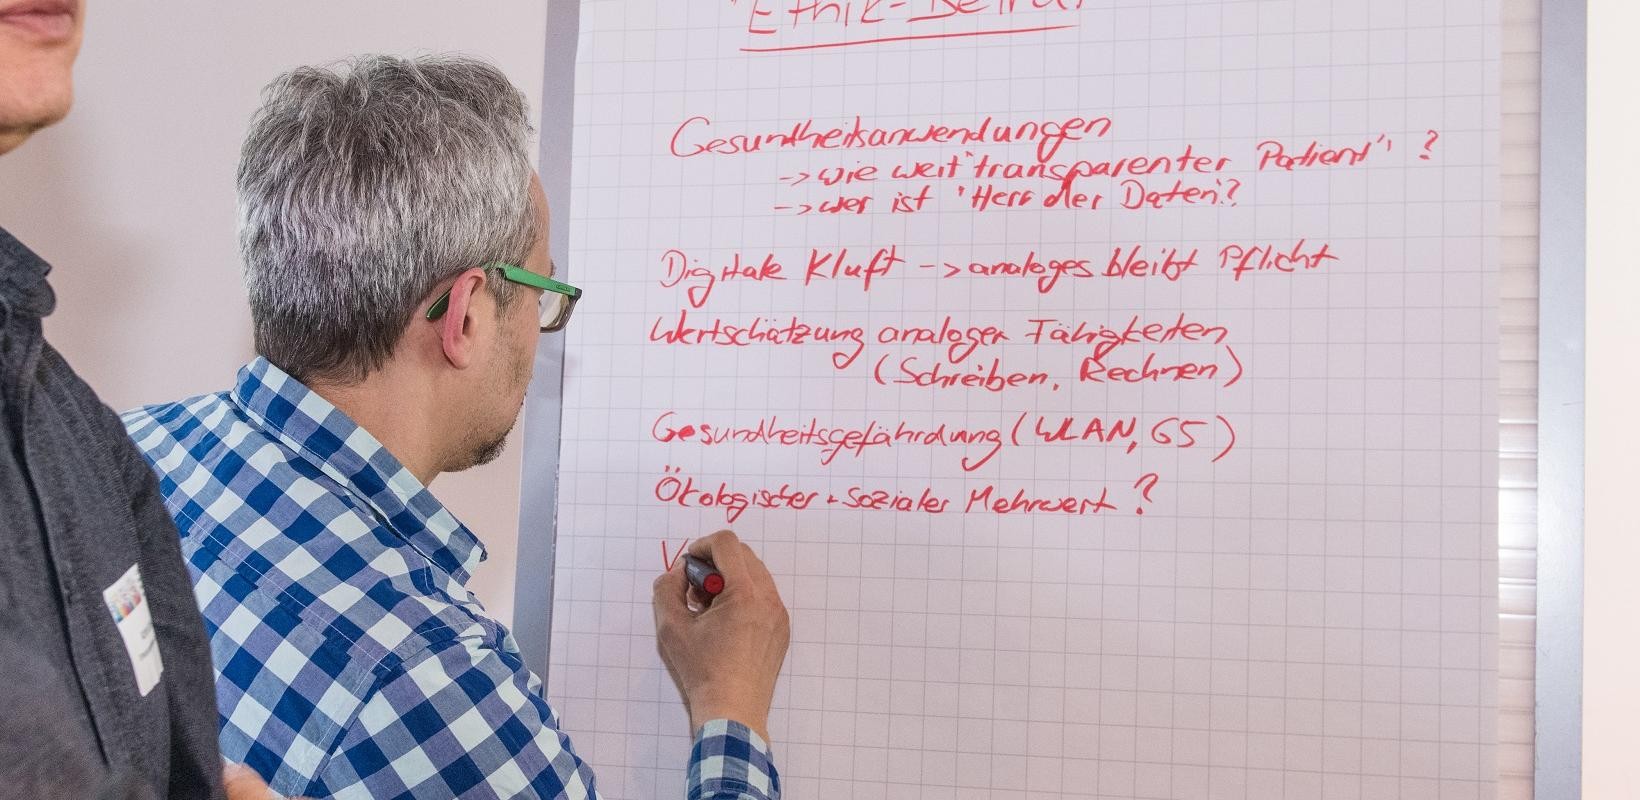 "Ethik-Beirat
Gesundheitsanwendungen
-> wie weit "transparenter Patient" ?
-> wer ist 'Herr der Daten'?
Digitale Kluft -> analoges bleibt Pflicht
Wertschätzung analoger Fähigkeiten
(Schreiben, Rechnen)
Gesundheitsgefährdung (WLAN, G5)
Ökologischer + Sozialer Mehrwert ?
V